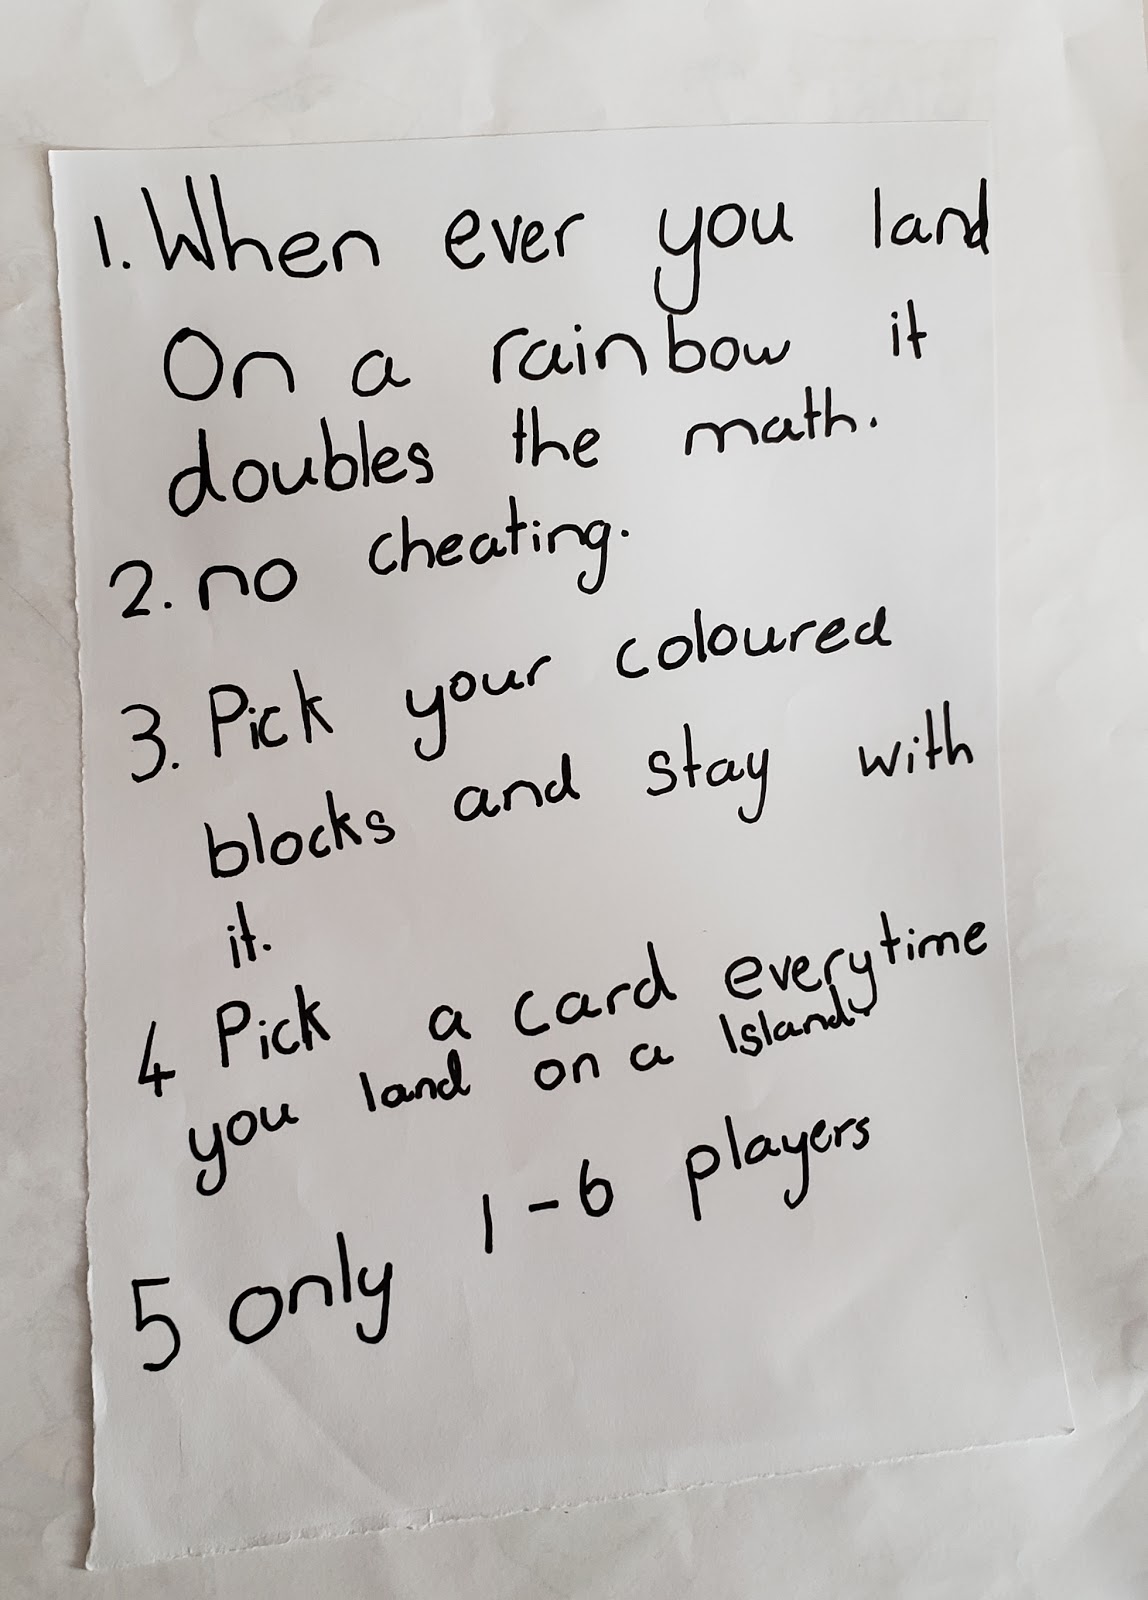 1. When ever you land
On a rainbow it
doubles the math.
2. no cheating.
3. Pick your coloured
blocks and stay with
it.
4 Pick a card everytime
you land on a Island.
5 only 1-6 players